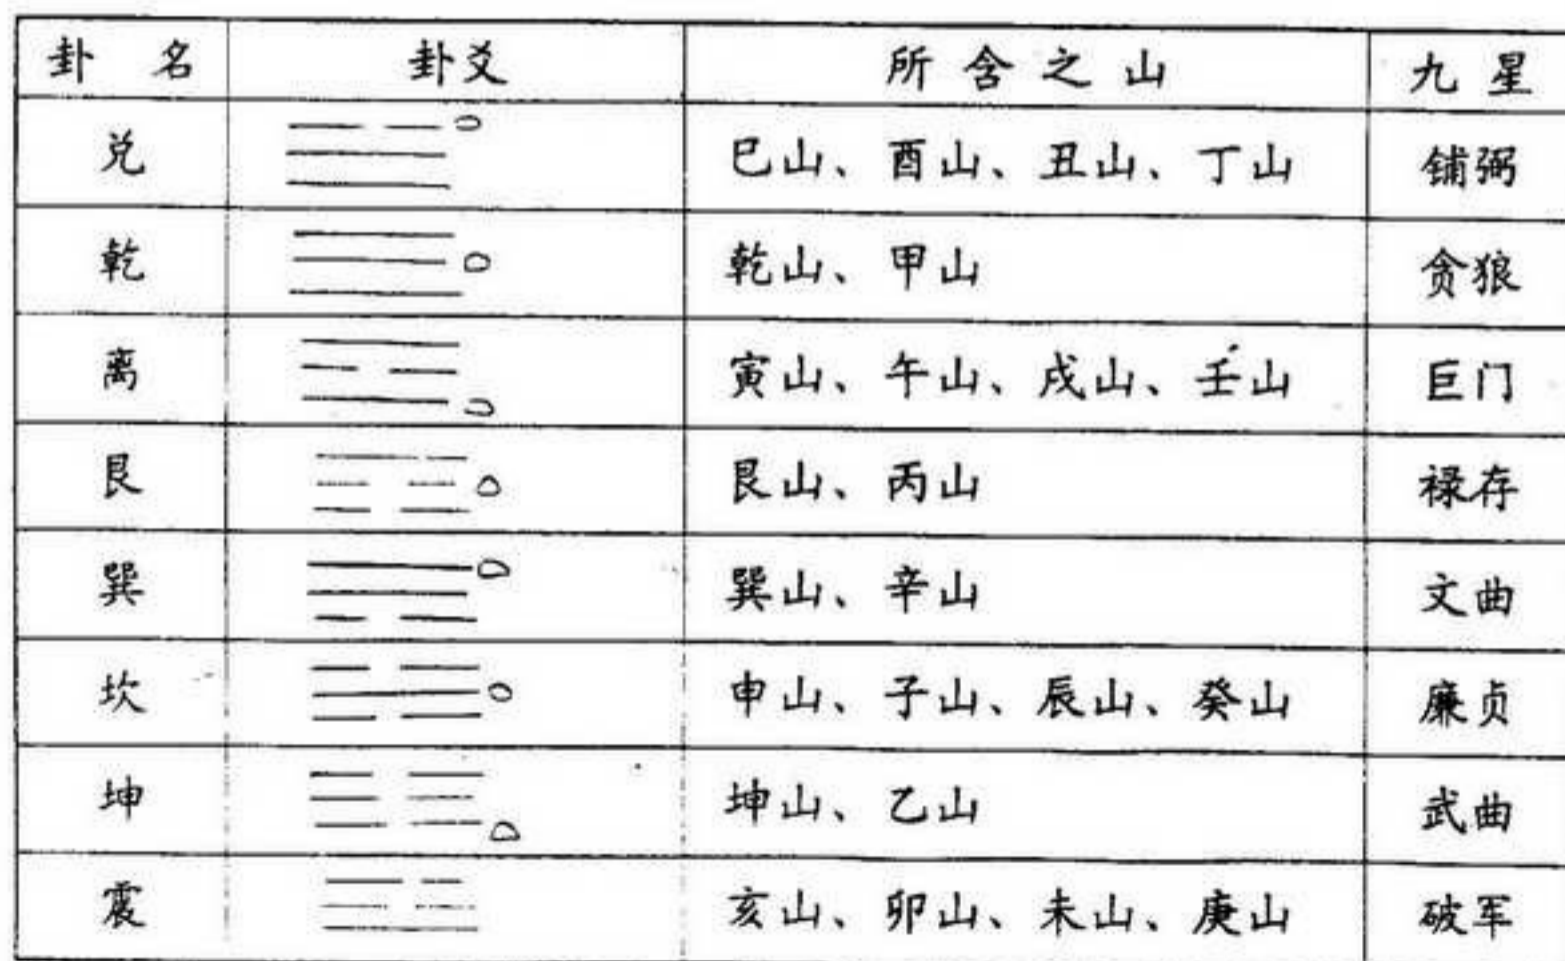 卦 名 卦爻 所含之山 九星
兑 巳山、酉山、丑山、丁山 铺弼
乾 乾山、甲山 贪狼
离 寅山、午山、戌山、壬山 巨门
艮 艮山、丙山 禄存
巽 巽山、辛山 文曲
坎 申山、子山、辰山、癸山 廉贞
坤 坤山、乙山 武曲
震 亥山、卯山、未山、庚山 破军